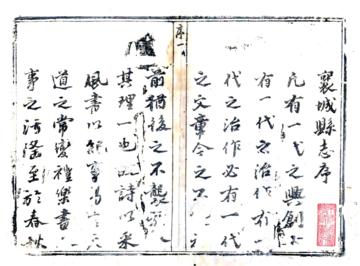 襄城縣志序
凡有一代之興創
有一代之治作有一
代之治作必有一代
之文章今之不
序一
前猶後之不襲
其理一也詩以采
風書以紀事易
道之常變禮樂書
事之汚隆至於春秋